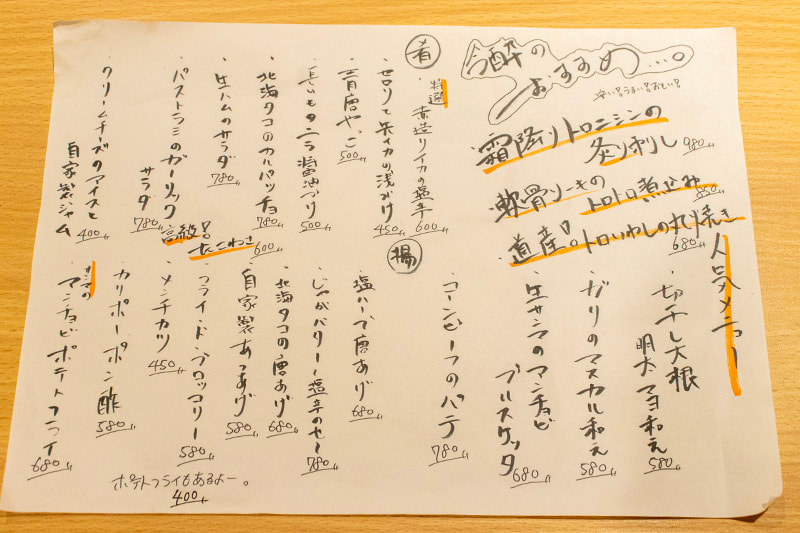 今酔の
おすすめ…。
安い!うまい!おもしい!
霜降りトロニシンの
炙り刺し 980
軟骨ソーキの
トロトロ煮込み 850
道産!トロいわしの丸焼き
680
人気メニュー
・切干し大根
明太マヨ和え
580
・ガリのマスカル和え
580
・生サンマのアンチョビ
ブルスケッタ
680
・コーンビーフのパテ
780
肴
特選
・赤造りイカの塩辛 600
・セロリと朱イカの浅づけ
450
・青唐やっこ
500
・長いもニラ醤油づけ
500
・北海タコのカルパッチョ
780
・生ハムのサラダ
780
・パストラミのガーリック
サラダ
780
・クリームチーズのアイスと
自家製ジャム
400
高級!
たこわさ
600
揚
・塩ハーブ唐あげ
680
・じゃがバター塩辛のせ
780
・北海タコの唐あげ
680
・自家製あつあげ
580
・フライドブロッコリー
580
・メンチカツ
450
・カリポーポン酢
580
サンマの
・アンチョビポテトフライ
680
ポテトフライもあるよー。
400